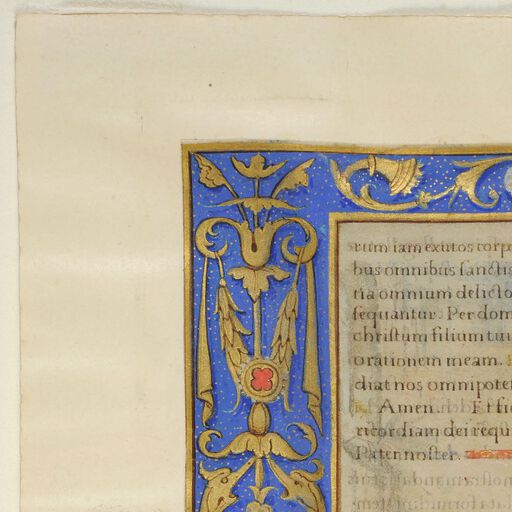 rum iam exutos corp
bus omnibus sanctis
tia omnium delicto
sequantur. Per dom
christum filium tuu
orationem meam.
diat nos omnipote
Amen. Et fi
ricordiam dei requi
Pater noster.